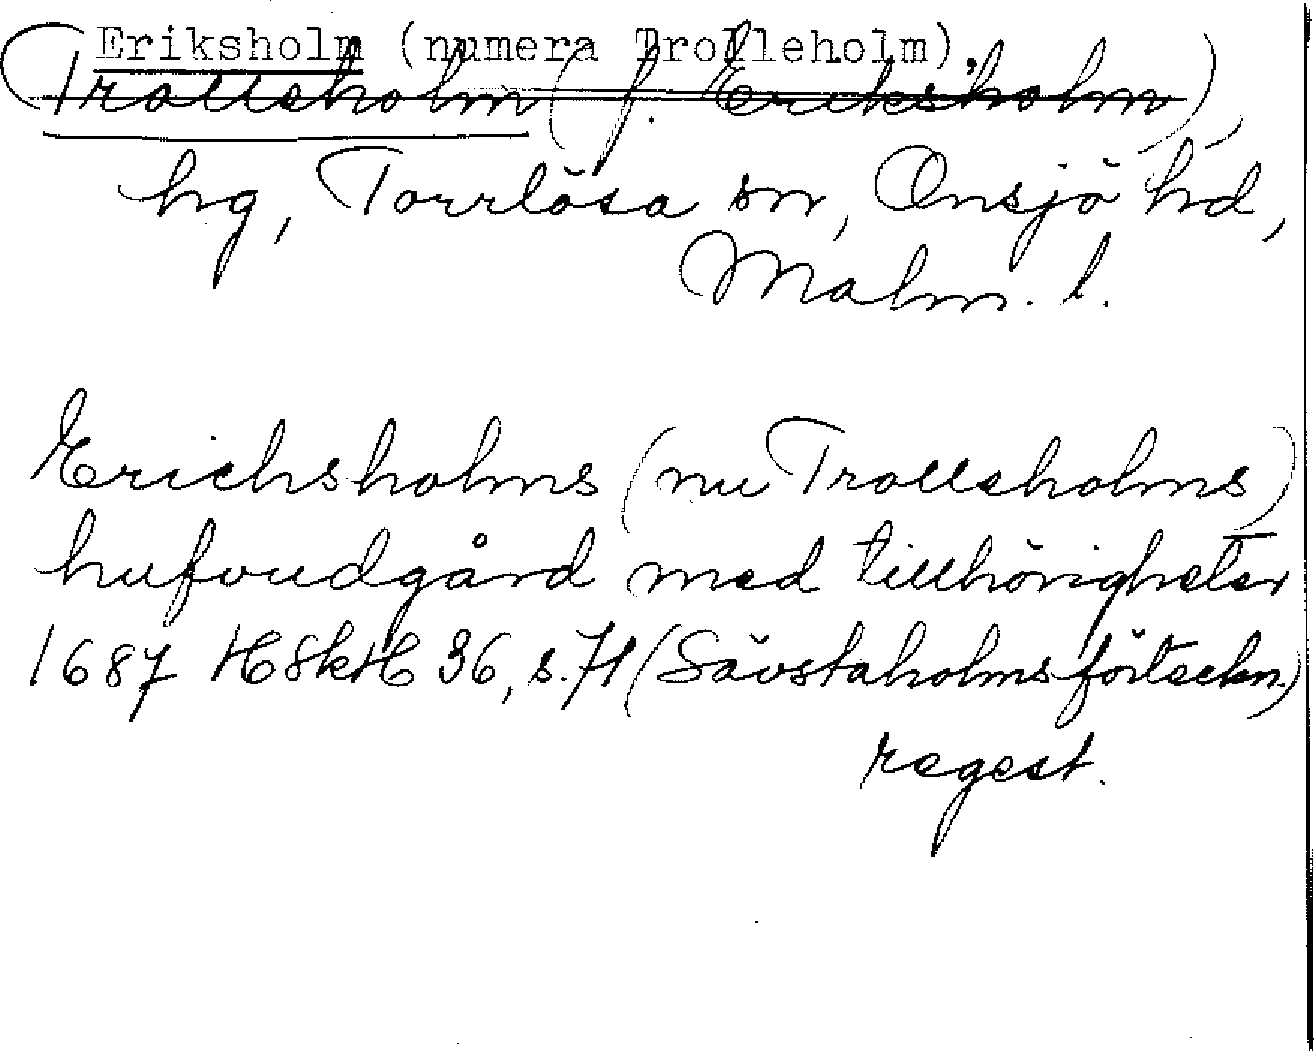 Eriksholm (numera Trolleholm),
Trolleholm (f. Eriksholm),
hg, Torrlösa sn, Onsjö hd,
Malm. l.
Erichsholms (nu Trolleholms)
hufvudgård med tillhörigheter
1687 HSkH 36, s. 71 (Sävstaholmsförteckn.)
regest.